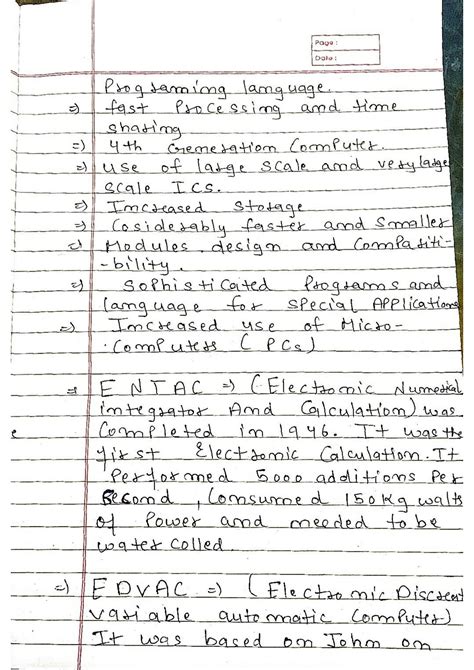 Page :
Date :
Programing language.
=) fast Processing and time
sharing
=) 4th Generation Computer.
=) use of large scale and very large
scale ICs.
=) Increased storage
=) Cosiderably faster and smaller
=) Modules design and Compatiti-
-bility.
=) Sophisticated Programs and
language for special Applications
=) Increased use of Micro-
Computers (PCs)
=) ENTAC =) (Electronic Numerical
integrator And Calculation) was
Completed in 1946. It was the
first Electronic Calculation. It
Performed 5000 additions Per
Second, Consumed 150Kg walts
of Power and needed to be
water colled.
=) EDVAC =) (Electronic Discreat
variable automatic Computer)
It was based on John on